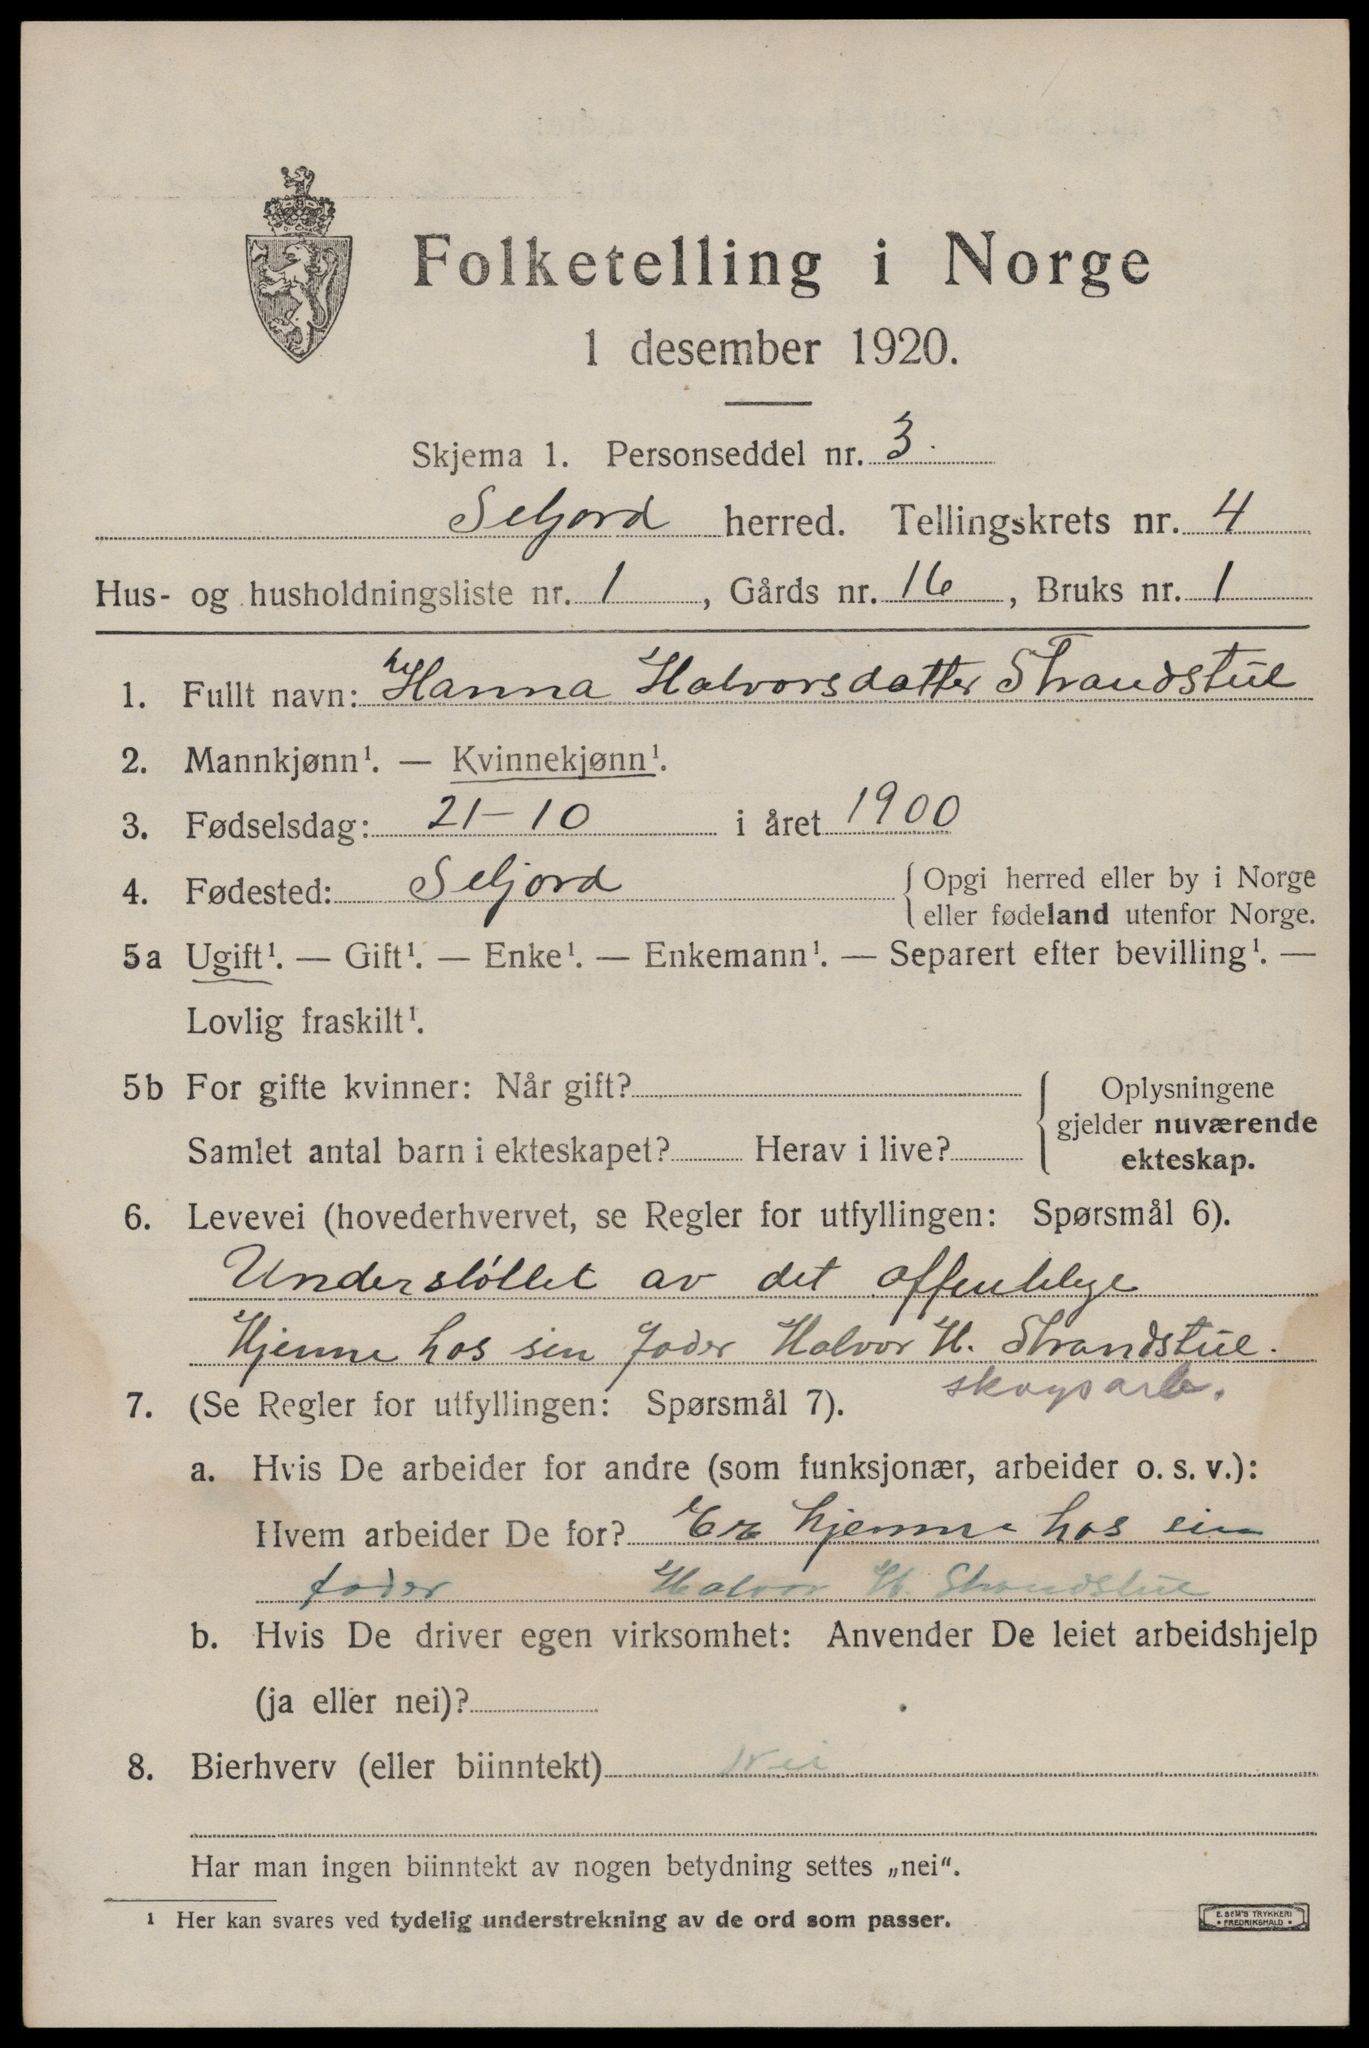 Folketelling i Norge
1 desember 1920.
Skjema 1. Personseddel nr. 3.
Seljord herred. Tellingskrets nr. 4
Hus- og husholdningsliste nr. 1, Gårds nr. 16, Bruks nr. 1
1. Fullt navn: Hanna Halvorsdatter Strandstul
2. Mannkjønn¹. — Kvinnekjønn¹.
3. Fødselsdag: 21-10 i året 1900
4. Fødested: Seljord { Opgi herred eller by i Norge
eller fødeland utenfor Norge.
5a Ugift¹. — Gift¹. — Enke¹. — Enkemann¹. — Separert efter bevilling¹. —
Lovlig fraskilt¹.
5b For gifte kvinner: Når gift? { Oplysningene
gjelder nuværende
Samlet antal barn i ekteskapet? Herav i live? ekteskap.
6. Levevei (hovederhvervet, se Regler for utfyllingen: Spørsmål 6).
Understøttet av det offentlige
Hjemme hos sin fader Halvor H. Strandstul.
skogsarb.
7. (Se Regler for utfyllingen: Spørsmål 7).
a. Hvis De arbeider for andre (som funksjonær, arbeider o. s. v.):
Hvem arbeider De for? Er hjemme hos sin
fader Halvor H. Strandstul
b. Hvis De driver egen virksomhet: Anvender De leiet arbeidshjelp
(ja eller nei)?
8. Bierhverv (eller biinntekt) Nei
Har man ingen biinntekt av nogen betydning settes „nei“.
¹ Her kan svares ved tydelig understrekning av de ord som passer.
E. SEM'S TRYKKERI
• FREDRIKSHALD •